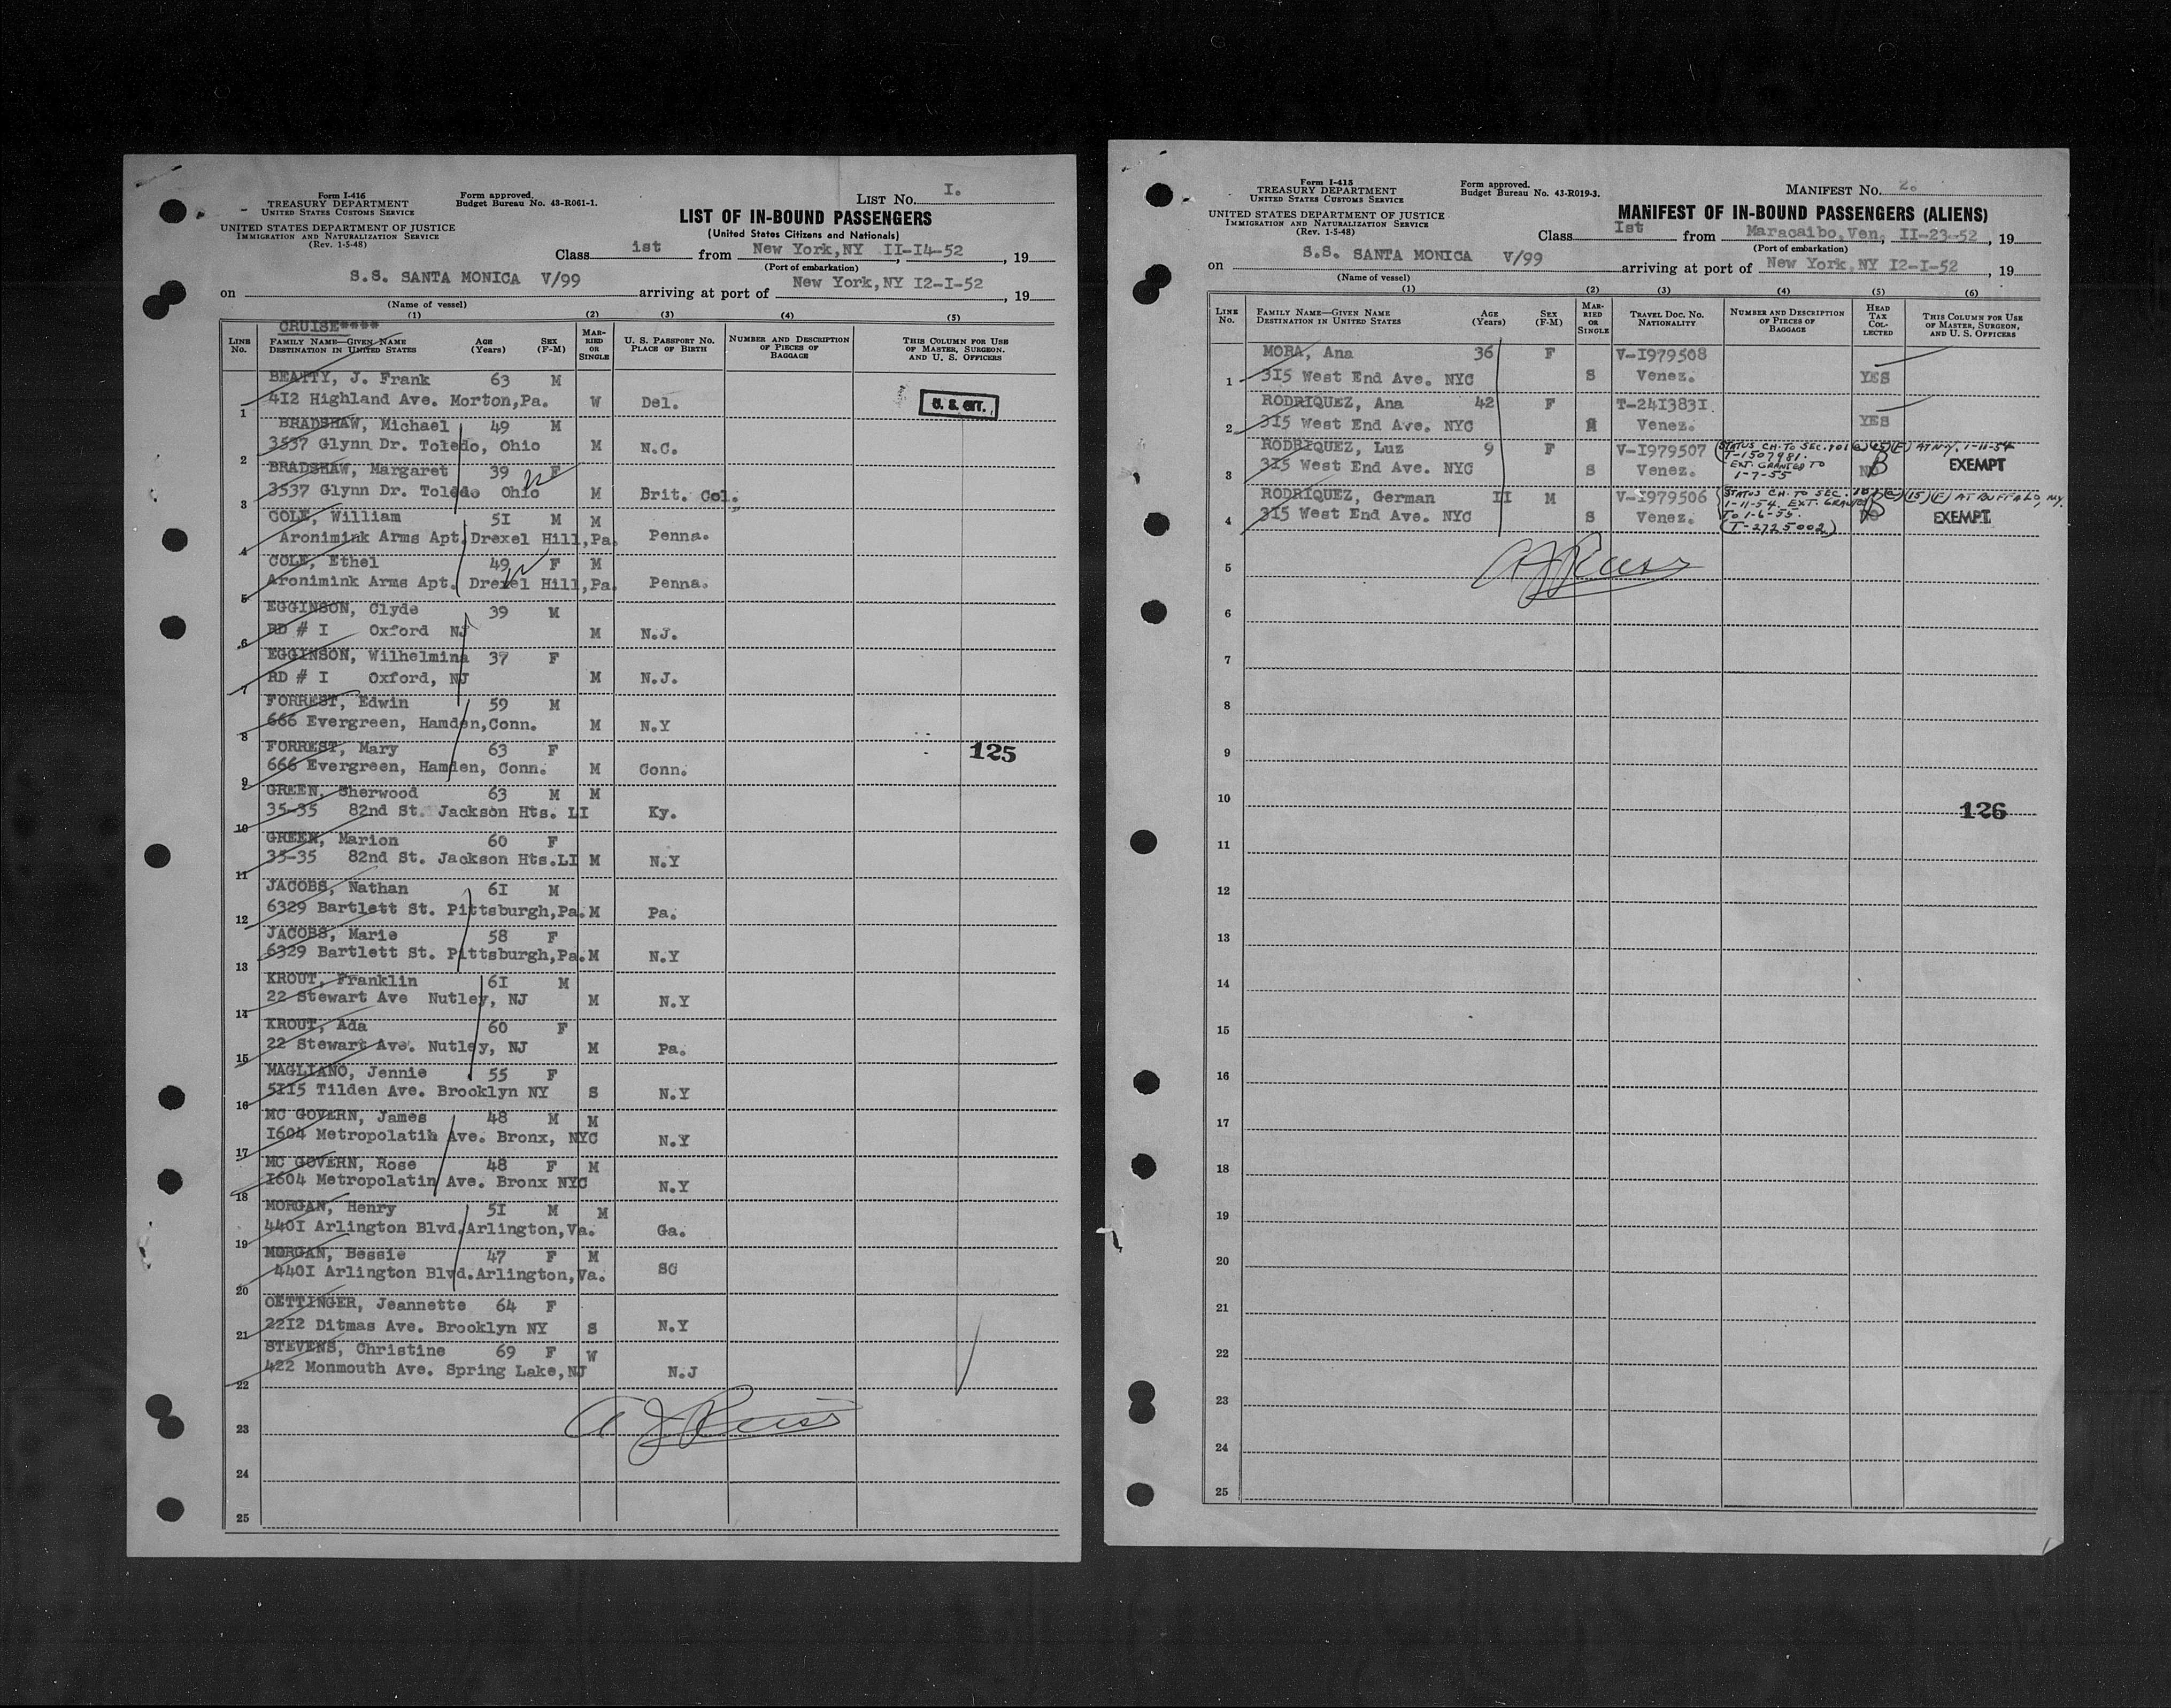 Form I-416
TREASURY DEPARTMENT
UNITED STATES CUSTOMS SERVICE
UNITED STATES DEPARTMENT OF JUSTICE
IMMIGRATION AND NATURALIZATION SERVICE
(Rev. 1-5-48)
Form approved.
Budget Bureau No. 43-R061-1.
LIST No. I.
LIST OF IN-BOUND PASSENGERS
(United States Citizens and Nationals)
Class 1st from New York,NY II-I4-52, 19
(Port of embarkation)
on S.S. SANTA MONICA V/99 arriving at port of New York,NY I2-I-52, 19
(Name of vessel)
(1) (2) (3) (4) (5)
CRUISE****
LINE No. FAMILY NAME—GIVEN NAME DESTINATION IN UNITED STATES AGE (Years) SEX (F-M) MARRIED OR SINGLE U. S. PASSPORT No. PLACE OF BIRTH NUMBER AND DESCRIPTION OF PIECES OF BAGGAGE THIS COLUMN FOR USE OF MASTER, SURGEON, AND U. S. OFFICERS
BEATTY, J. Frank 63 M
1 4I2 Highland Ave. Morton,Pa. W Del. U. S. CIT.
BRADSHAW, Michael 49 M
2 3537 Glynn Dr. Toledo, Ohio M N.C.
BRADSHAW, Margaret 39 F
3 3537 Glynn Dr. Toledo Ohio M Brit. Col.
COLE, William 5I M M
4 Aronimink Arms Apt. Drexel Hill,Pa. Penna.
COLE, Ethel 49 F M
5 Aronimink Arms Apt. Drexel Hill,Pa. Penna.
EGGINSON, Clyde 39 M
6 RD # I Oxford NJ M N.J.
EGGINSON, Wilhelmina 37 F
7 RD # I Oxford, NJ M N.J.
FORREST, Edwin 59 M
8 666 Evergreen, Hamden,Conn. M N.Y
FORREST, Mary 63 F 125
9 666 Evergreen, Hamden, Conn. M Conn.
GREEN, Sherwood 63 M M
10 35-35 82nd St. Jackson Hts. LI Ky.
GREEN, Marion 60 F
11 35-35 82nd St. Jackson Hts.LI M N.Y
JACOBS, Nathan 6I M
12 6329 Bartlett St. Pittsburgh,Pa. M Pa.
JACOBS, Marie 58 F
13 6329 Bartlett St. Pittsburgh,Pa. M N.Y
KROUT, Franklin 6I M
14 22 Stewart Ave Nutley, NJ M N.Y
KROUT, Ada 60 F
15 22 Stewart Ave. Nutley, NJ M Pa.
MAGLIANO, Jennie 55 F
16 5II5 Tilden Ave. Brooklyn NY S N.Y
MC GOVERN, James 48 M M
17 I604 Metropolatin Ave. Bronx, NYC N.Y
MC GOVERN, Rose 48 F M
18 I604 Metropolatin Ave. Bronx NYC N.Y
MORGAN, Henry 5I M M
19 440I Arlington Blvd.Arlington,Va. Ga.
MORGAN, Bessie 47 F M
20 440I Arlington Blvd.Arlington,Va. SC
OETTINGER, Jeannette 64 F
21 22I2 Ditmas Ave. Brooklyn NY S N.Y
STEVENS, Christine 69 F W
22 422 Monmouth Ave. Spring Lake,NJ N.J
23 A J Reiss
24
25
Form I-415
TREASURY DEPARTMENT
UNITED STATES CUSTOMS SERVICE
UNITED STATES DEPARTMENT OF JUSTICE
IMMIGRATION AND NATURALIZATION SERVICE
(Rev. 1-5-48)
Form approved.
Budget Bureau No. 43-R019-3.
MANIFEST No. 2.
MANIFEST OF IN-BOUND PASSENGERS (ALIENS)
Class Ist from Maracaibo,Ven. II-23-52, 19
(Port of embarkation)
on S.S. SANTA MONICA V/99 arriving at port of New York,NY I2-I-52, 19
(Name of vessel)
(1) (2) (3) (4) (5) (6)
LINE No. FAMILY NAME—GIVEN NAME DESTINATION IN UNITED STATES AGE (Years) SEX (F-M) MARRIED OR SINGLE TRAVEL DOC. No. NATIONALITY NUMBER AND DESCRIPTION OF PIECES OF BAGGAGE HEAD TAX COLLECTED THIS COLUMN FOR USE OF MASTER, SURGEON, AND U. S. OFFICERS
MORA, Ana 36 F V-I979508
1 3I5 West End Ave. NYC S Venez. YES
RODRIQUEZ, Ana 42 F T-24I383I
2 3I5 West End Ave. NYC Venez. YES
RODRIQUEZ, Luz 9 F V-I979507 STATUS CH. TO SEC. 101 (a)(15)(F) AT NY, 1-11-54
T-1507981.
EXT. GRANTED TO
1-7-55
3 3I5 West End Ave. NYC S Venez. NO EXEMPT
RODRIQUEZ, German II M V-I979506 STATUS CH. TO SEC. 101 (a)(15)(F) AT BUFFALO, NY.
1-11-54. EXT. GRANTED
TO 1-6-55.
(T-2725002)
4 3I5 West End Ave. NYC S Venez. NO EXEMPT.
A J Reiss
5
6
7
8
9
10 126
11
12
13
14
15
16
17
18
19
20
21
22
23
24
25